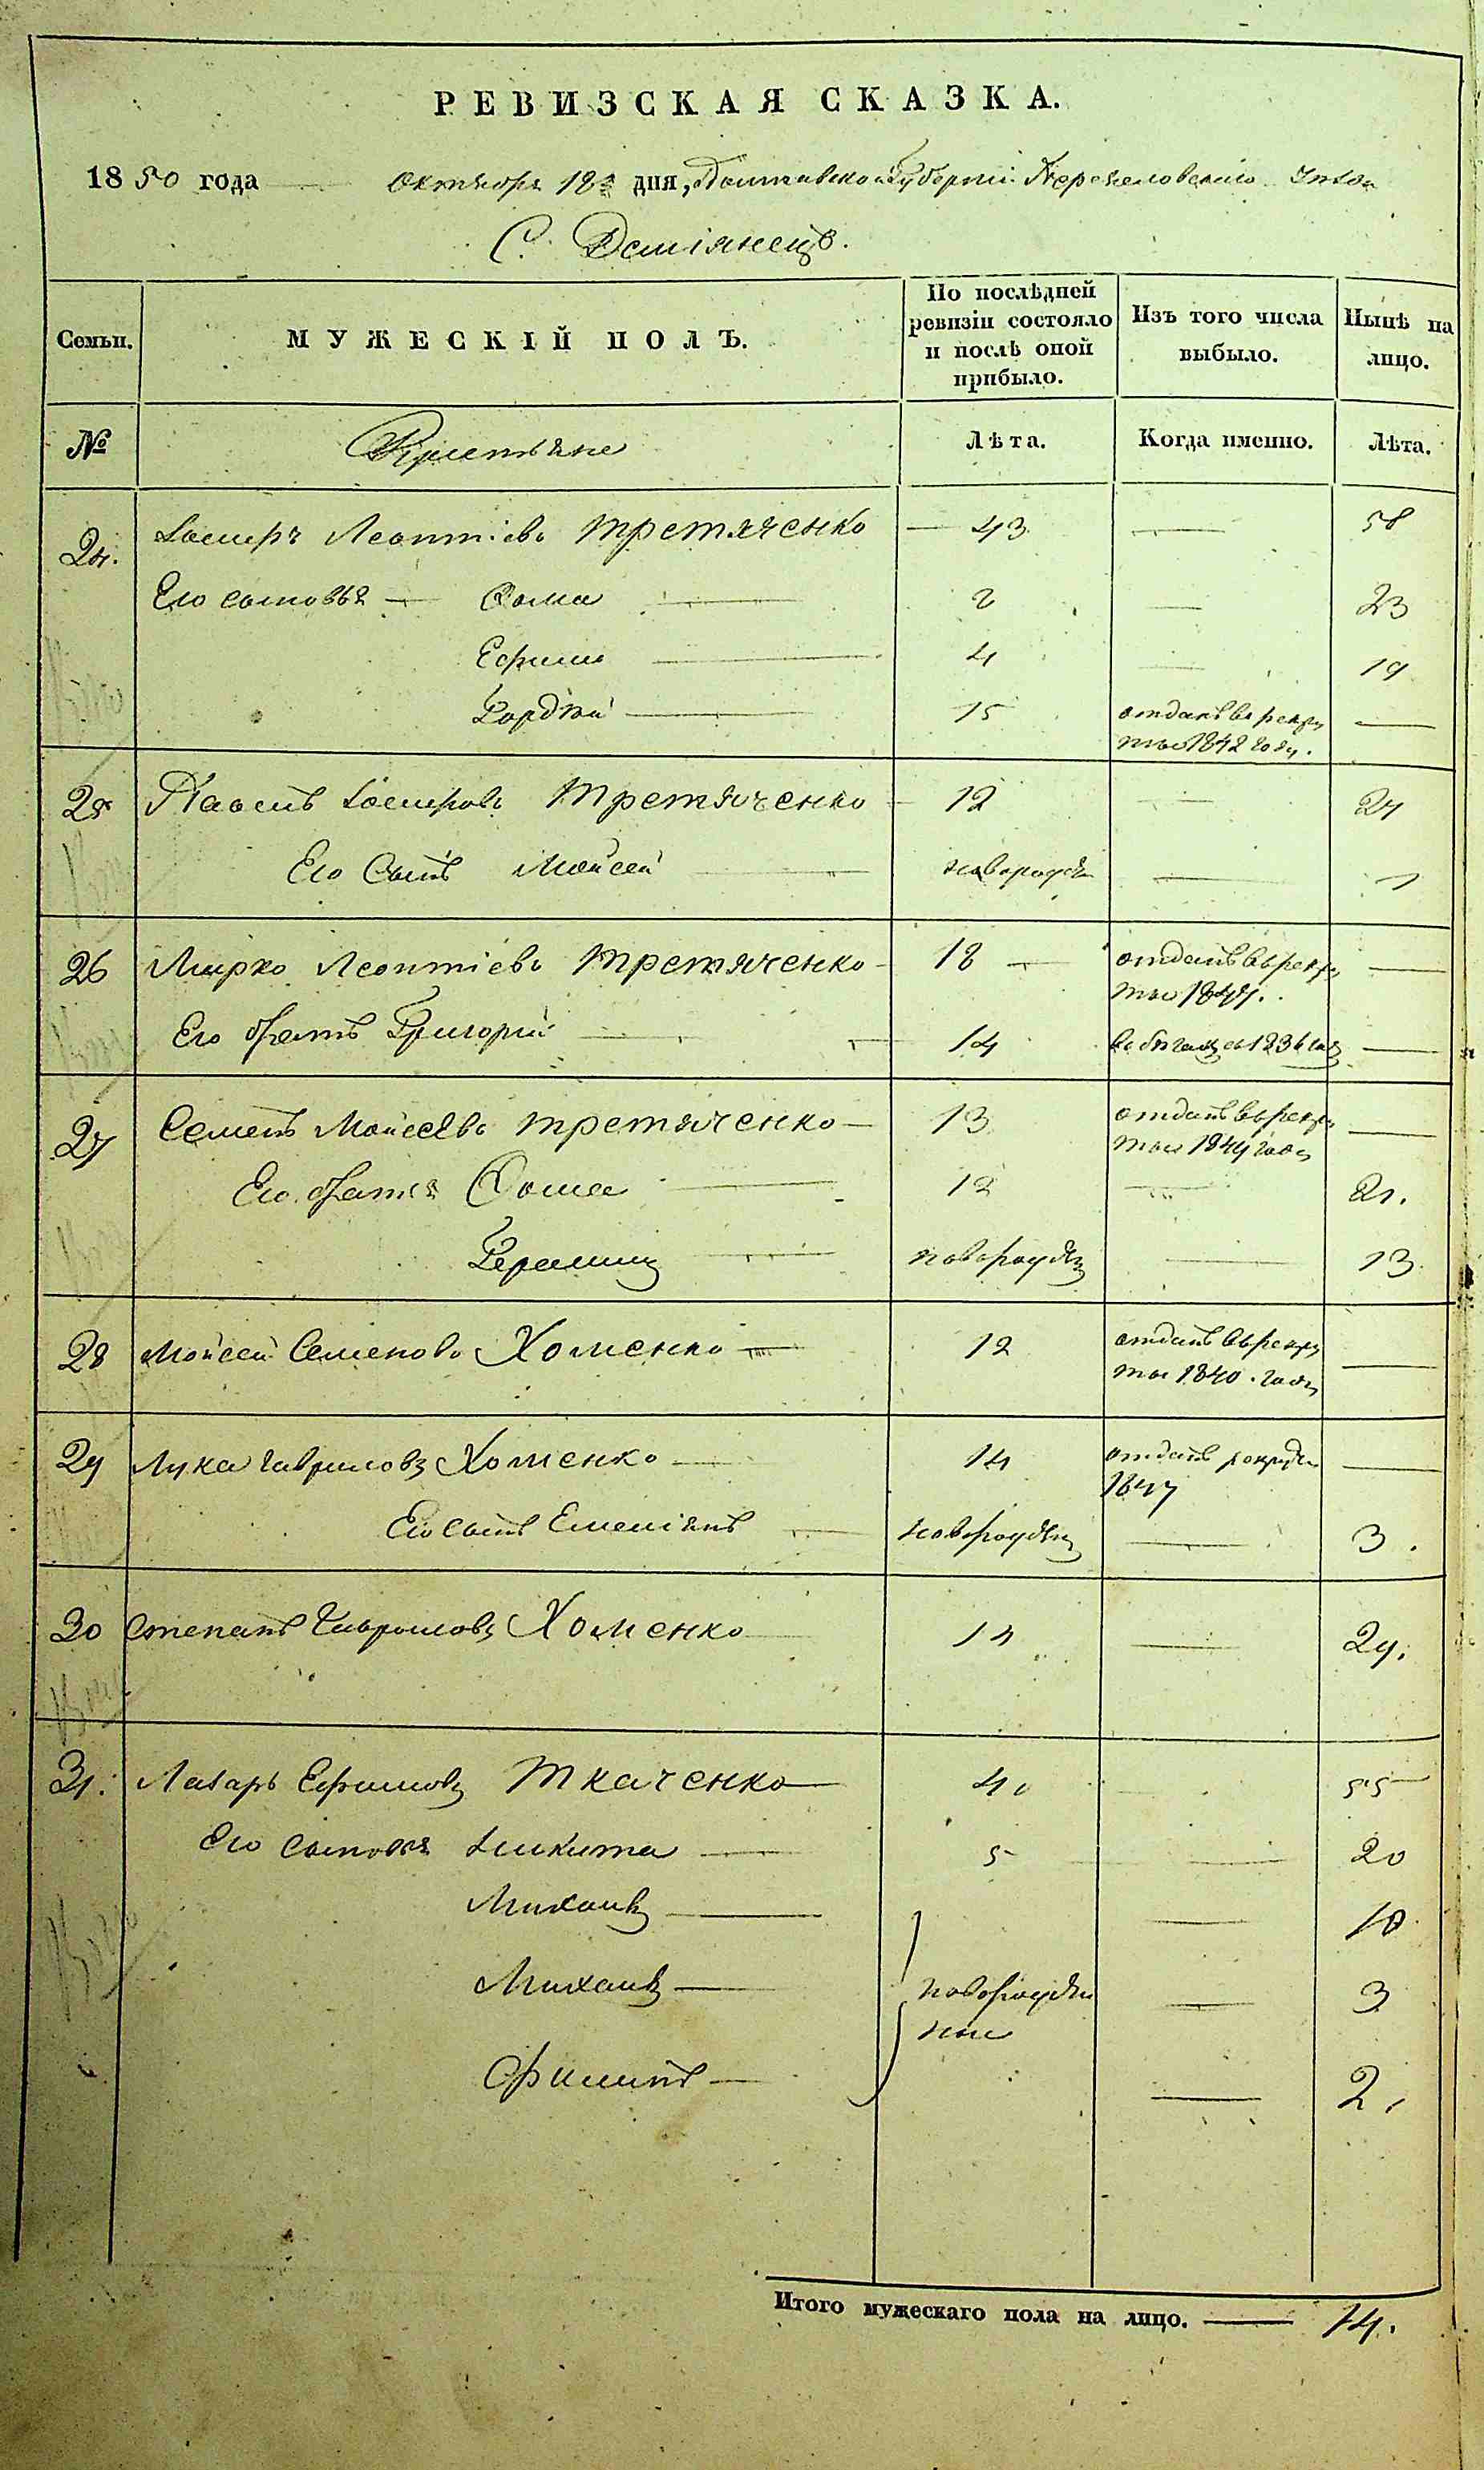 РЕВИЗСКАЯ СКАЗКА.
1850 года Октября 18 дня, Полтавской Губерніи Переяславскаго
С. Деміянецъ.
Семьи. МУЖЕСКІЙ ПОЛЪ. По послѣдней ревизіи состояло и послѣ оной прибыло. Изъ того числа выбыло. Нынѣ на лицо.
№ Крестьяне Лѣта. Когда именно. Лѣта.
24. Леонтіевъ Третяченко — 43 — 58
Его сыновья — Фома — 2 — 23
Ефимъ — 4 — 19
Гордѣй — 15 отданъ въ рекру —
ты 1842 году.
25 Павелъ Третяченко — 12 — 27
Его Сынъ Мойсей — новорожден — 1
26 Мирко Леонтіевъ Третяченко — 18 — отданъ въ рекру —
ты
Его братъ Григорій — 14 въ бѣгахъ съ 1836 года —
27 Семенъ Мойсѣевъ Третяченко — 13 отданъ въ рекру —
ты 1844 года
Его братья Фома — 12 — 21.
Герасимъ — новорожден — 13
28 Мойсей Семеновъ Хоменко — 12 отданъ въ рекру —
ты 1840. года
29 Лука Гавриловъ Хоменко — 14 отданъ —
1847
Его сынъ Емеліянъ — новорожден — 3.
30 Степанъ Гавриловъ Хоменко — 14 — 29.
31. Лазарь Ефимовъ Ткаченко — 40 55
Его сыновья Никита — 5 — 20
Михаилъ — — 10
Михаилъ — новорожден — 3
ные
Филипъ — — 2.
Итого мужескаго пола на лицо. — 14.